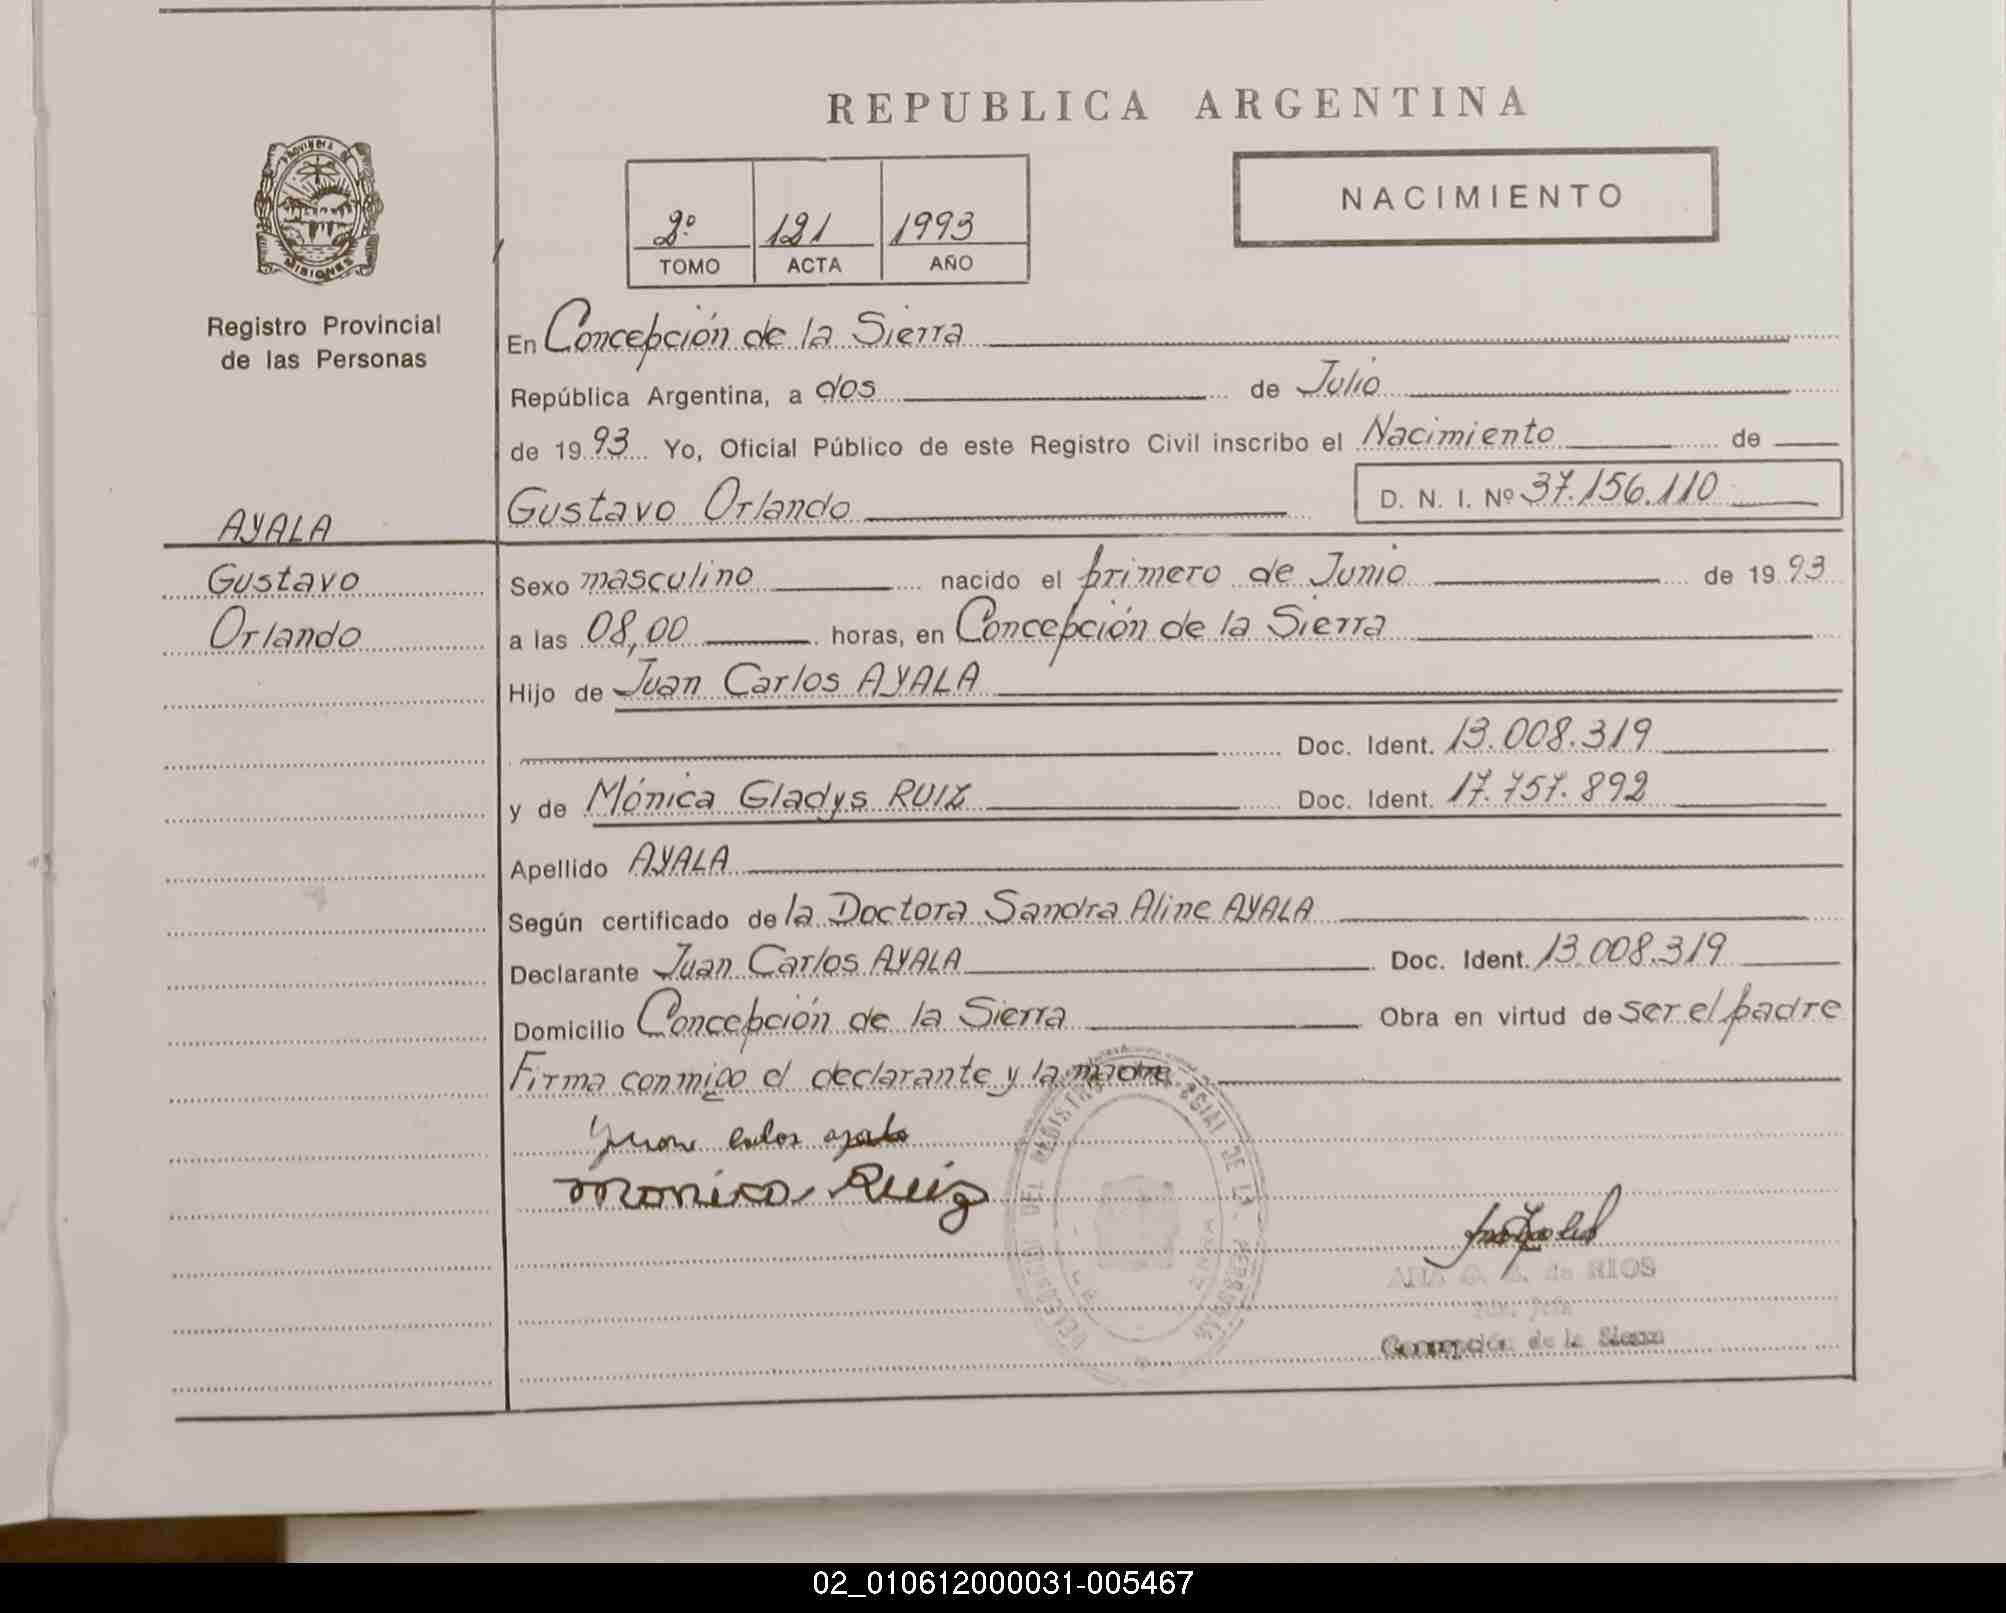 REPUBLICA ARGENTINA
PROVINCIA DE
MISIONES
Registro Provincial
de las Personas
2º 121 1993
TOMO ACTA AÑO
NACIMIENTO
En Concepción de la Sierra
República Argentina, a dos de Julio
de 1993 Yo, Oficial Público de este Registro Civil inscribo el Nacimiento de
Gustavo Orlando D. N. I. Nº 37.156.110
AYALA
Gustavo
Orlando
Sexo masculino nacido el primero de Junio de 1993
a las 08,00 horas, en Concepción de la Sierra
Hijo de Juan Carlos AYALA
Doc. Ident. 13.008.319
y de Mónica Gladys RUIZ Doc. Ident. 17.757.892
Apellido AYALA
Según certificado de la Doctora Sandra Aline AYALA
Declarante Juan Carlos AYALA Doc. Ident. 13.008.319
Domicilio Concepción de la Sierra Obra en virtud de ser el padre
Firma conmigo el declarante y la madre
Juan carlos ayala
monica Ruiz
DEL REGISTRO DE LA
de RIOS
Concepción de la Sierra
02_010612000031-005467